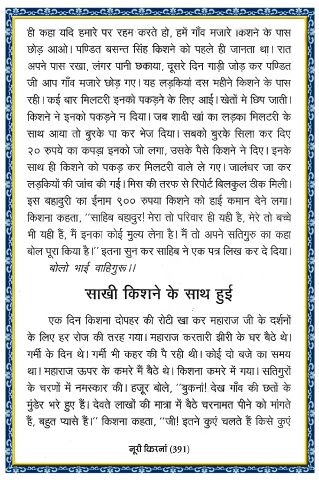 ही कहा यदि हमारे पर रहम करते हो, हमें गाँव मजारे।कशने के पास
छोड़ आओ। पण्डित बसन्त सिंह किशने को पहले ही जानता था। रात
अपने पास रखा, लंगर पानी छकाया, दूसरे दिन गाड़ी जोड़ कर पण्डित
जी आप गाँव मजारे छोड़ गए। यह लड़कियां दस महीने किशने के पास
रही। कई बार मिलटरी इनको पकड़ने के लिए आई। खेतों मे छिप जाती।
किशने ने इनको पकड़ने न दिया। जब शादी खां का लड़का मिलटरी के
साथ आया तो बुरके पा कर भेज दिया। सबको बुरके सिला कर दिए
२० रुपये का कपड़ा इनको जो लगा, उसके पैसे किशने ने दिए। इनके
साथ ही किशने को पकड़ कर मिलटरी वाले ले गए। जालंधर जा कर
लड़कियों की जांच की गई। मिस की तरफ से रिपोर्ट बिलकुल ठीक मिली।
इस बहादुरी का ईनाम ९०० रुपया किशने को हाई कमान देने लगा।
किशना कहता, "साहिब बहादुर! मेरा तो परिवार ही यही है, मेरे तो बच्चे
भी यही हैं, मैं इनका कोई मुल्य लेना है। मैं तो अपने सतिगुरु का कहा
बोल पूरा किया है।" इतना सुन कर साहिब ने एक पत्र लिख कर दे दिया।
बोलो भाई वाहिगुरू।।
साखी किशने के साथ हुई
एक दिन किशना दोपहर की रोटी खा कर महाराज जी के दर्शनों
के लिए हर रोज की तरह गया। महाराज करतारी झीरी के घर बैठे थे।
गर्मी के दिन थे। गर्मी भी कहर की पै रही थी। कोई दो बजे का समय
था। महाराज ऊपर के कमरे में बैठे थे। किशना कमरे में गया। सतिगुरों
के चरणों में नमस्कार की। हजूर बोले, "बुकनां! देख गाँव की छतों के
मुंडेर भरे हुए हैं। देवते लाखों की मात्रा में बैठे चरनामत पीने को मांगते
हैं, बहुत प्यासे हैं।" किशना कहता, "जी! इतने कुएं चलते हैं किसे कुएं
नूरी किरनां (391)